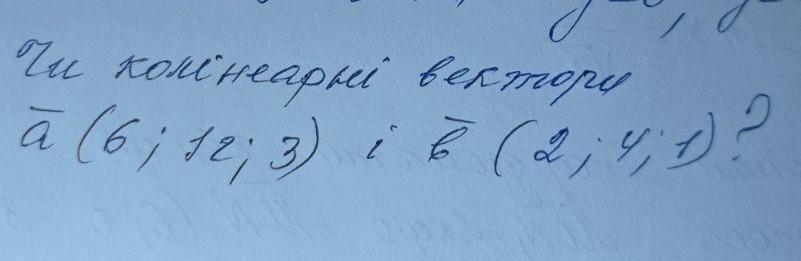 Чи колінеарні вектори
ā (6; 12; 3) і b̄ (2; 4; 1)?